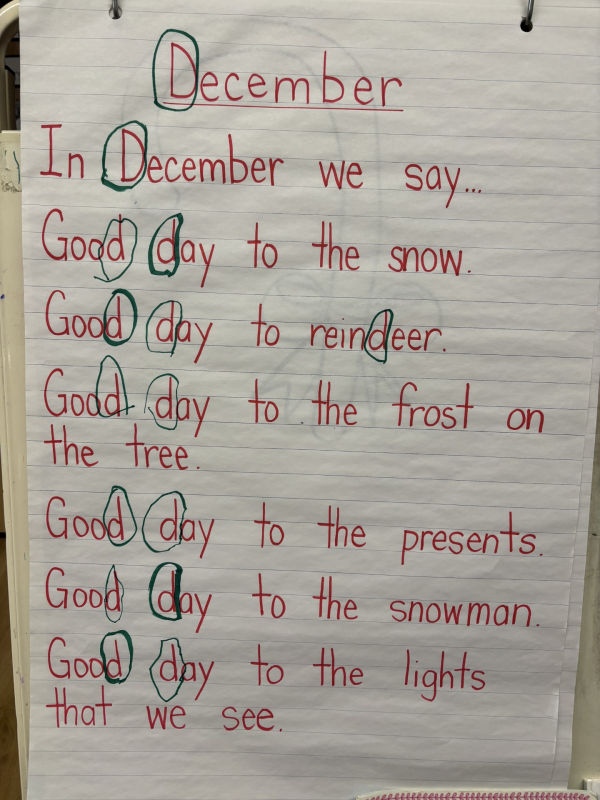 December
In December we say...
Good day to the snow.
Good day to reindeer.
Good day to the frost on
the tree.
Good day to the presents.
Good day to the snowman.
Good day to the lights
that we see.